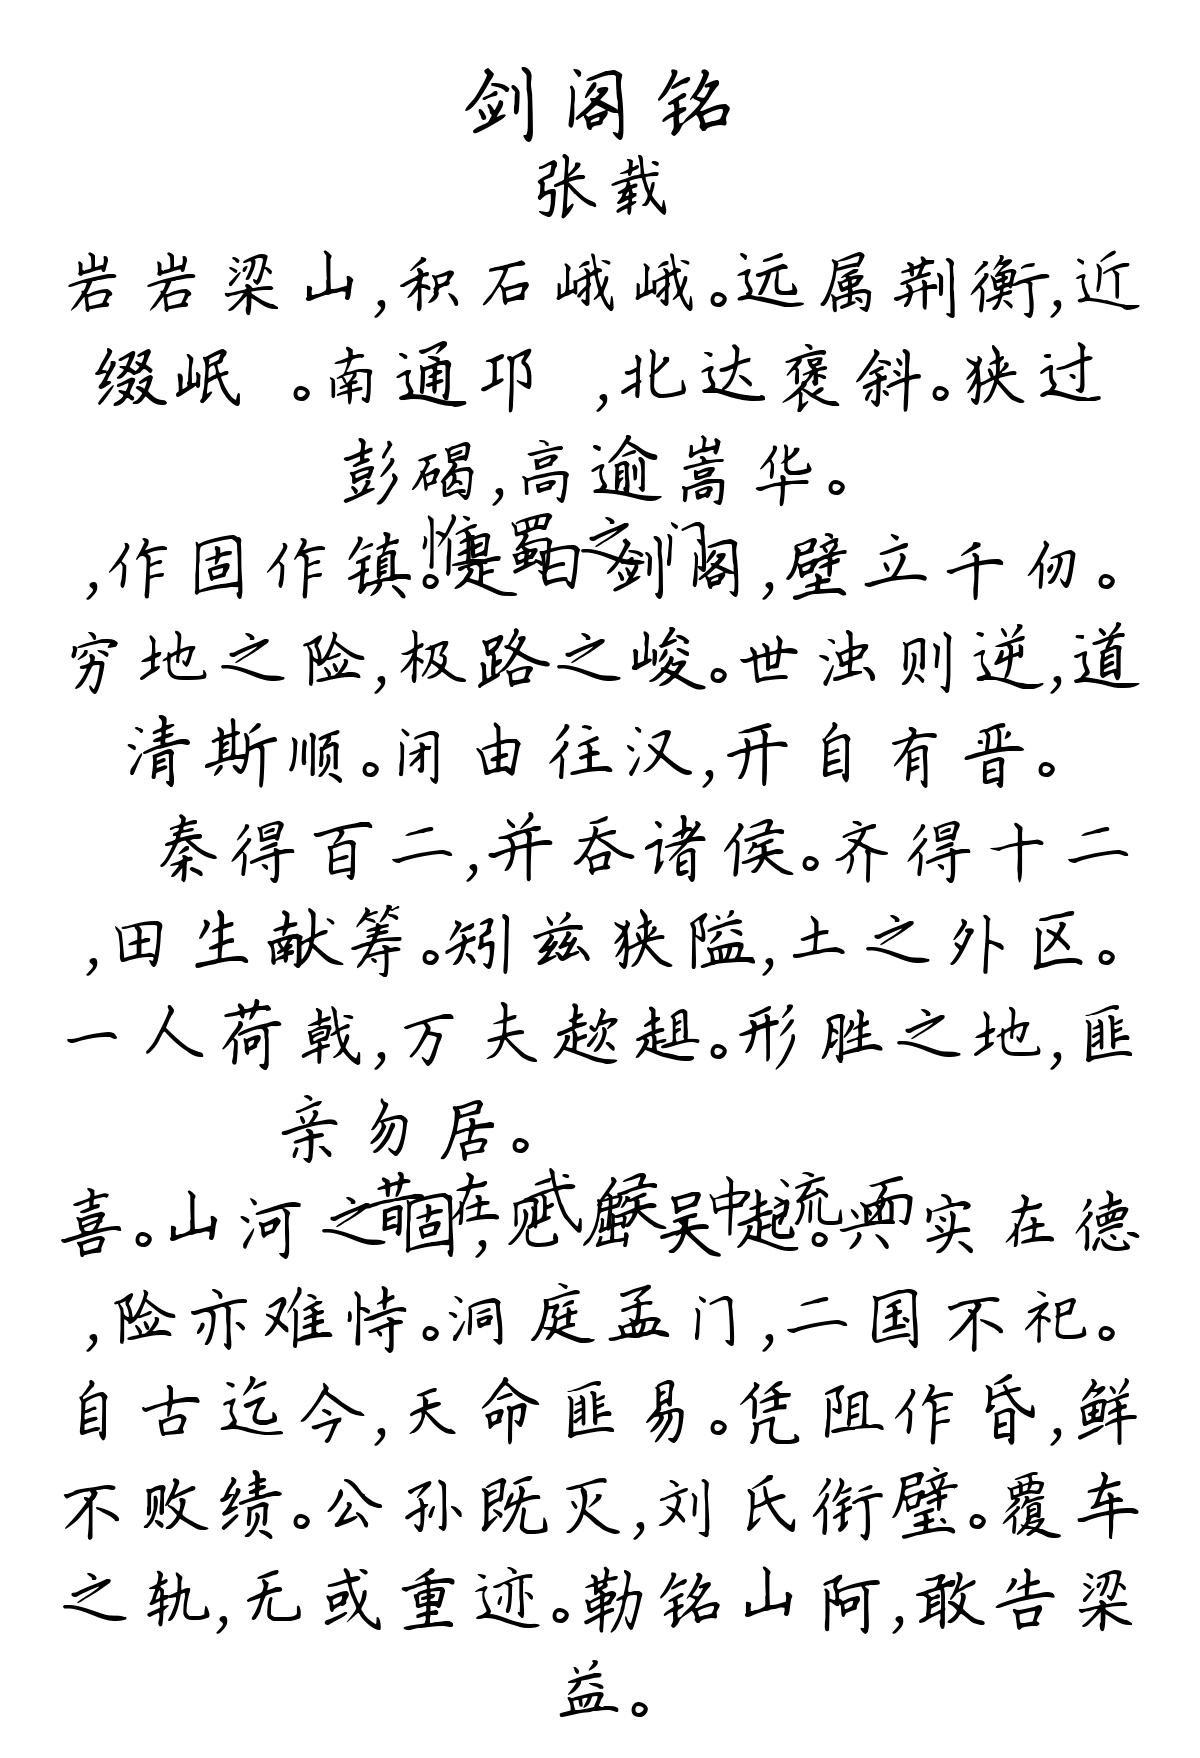 剑阁铭
张载
岩岩梁山,积石峨峨。远属荆衡,近
缀岷 。南通邛 ,北达褒斜。狭过
彭碣,高逾嵩华。
惟蜀之门
,作固作镇。是曰剑阁,壁立千仞。
穷地之险,极路之峻。世浊则逆,道
清斯顺。闭由往汉,开自有晋。
秦得百二,并吞诸侯。齐得十二
,田生献筹。矧兹狭隘,土之外区。
一人荷戟,万夫趑趄。形胜之地,匪
亲勿居。
昔在武侯中流而
喜。山河之固,见屈吴起。兴实在德
,险亦难恃。洞庭孟门,二国不祀。
自古迄今,天命匪易。凭阻作昏,鲜
不败绩。公孙既灭,刘氏衔璧。覆车
之轨,无或重迹。勒铭山阿,敢告梁
益。